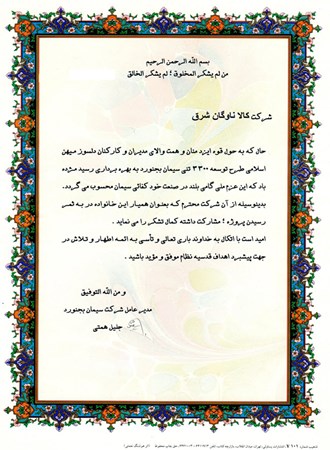 بسم الله الرحمن الرحیم
من لم یشکر المخلوق ؛ لم یشکر الخالق
شرکت کالا ناوگان شرق
حال که به حول قوه ایزد منان و همت والای مدیران و کارکنان دلسوز میهن
اسلامی طرح توسعه ۳۳۰۰ تنی سیمان بجنورد به بهره برداری رسید مژده
باد که این عزم ملی گامی بلند در صنعت خود کفائی سیمان محسوب می گردد.
بدینوسیله از آن شرکت محترم که بعنوان همیار این خانواده در به ثمر
رسیدن پروژه ؛ مشارکت داشته کمال تشکر را می نماید .
امید است با اتکال به خداوند باری تعالی و تأسی به ائمه اطهار و تلاش در
جهت پیشبرد اهداف قدسیه نظام موفق و مؤید باشید .
و من الله التوفیق
مدیر عامل شرکت سیمان بجنورد
جلیل همتی